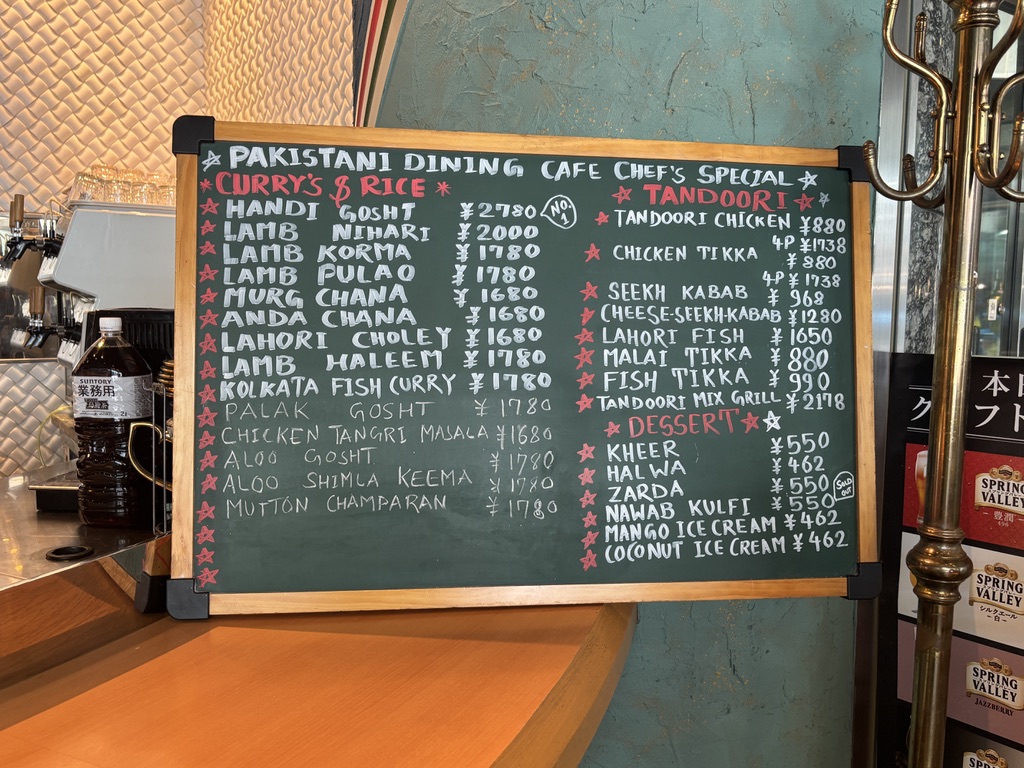 PAKISTANI DINING CAFE CHEF'S SPECIAL
CURRY'S & RICE
HANDI GOSHT ¥2780 NO.1
LAMB NIHARI ¥2000
LAMB KORMA ¥1780
LAMB PULAO ¥1780
MURG CHANA ¥1680
ANDA CHANA ¥1680
LAHORI CHOLEY ¥1680
LAMB HALEEM ¥1780
KOLKATA FISH CURRY ¥1780
PALAK GOSHT ¥1780
CHICKEN TANGRI MASALA ¥1680
ALOO GOSHT ¥1780
ALOO SHIMLA KEEMA ¥1780
MUTTON CHAMPARAN ¥1780
TANDOORI
TANDOORI CHICKEN ¥880
4P ¥1738
CHICKEN TIKKA ¥880
4P ¥1738
SEEKH KABAB ¥968
CHEESE-SEEKH-KABAB ¥1280
LAHORI FISH ¥1650
MALAI TIKKA ¥880
FISH TIKKA ¥990
TANDOORI MIX GRILL ¥2178
DESSERT
KHEER ¥550
HALWA ¥462
ZARDA ¥550 SOLD OUT
NAWAB KULFI ¥550
MANGO ICE CREAM ¥462
COCONUT ICE CREAM ¥462
SUNTORY
業務用
2L
本
ク
フト
SPRING VALLEY
豊潤
496
SPRING VALLEY
シルクエール
-白-
SPRING VALLEY
JAZZBERRY
SPRING